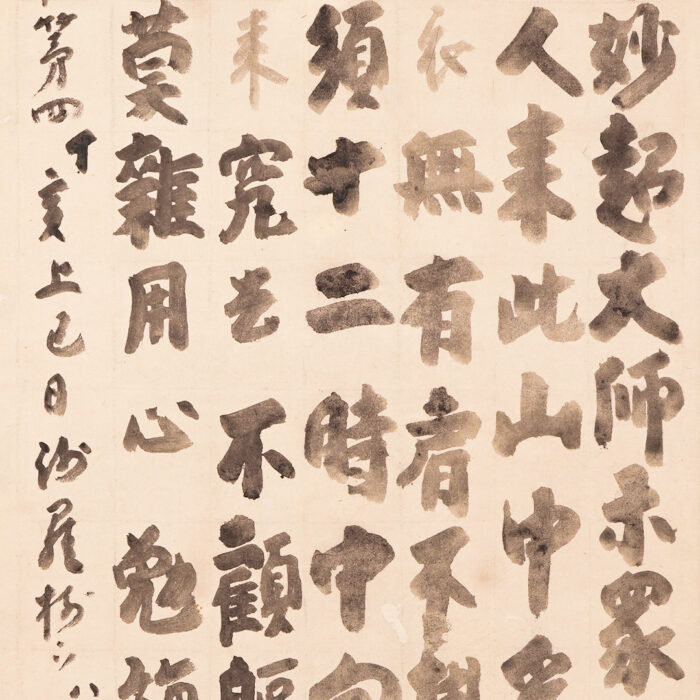 妙超大師示眾
人来此山中
衣無有肩不
須十二時中向
来究去不顧軀
莫雜用心勉旃
第四丁亥上巳日沙羅樹下八